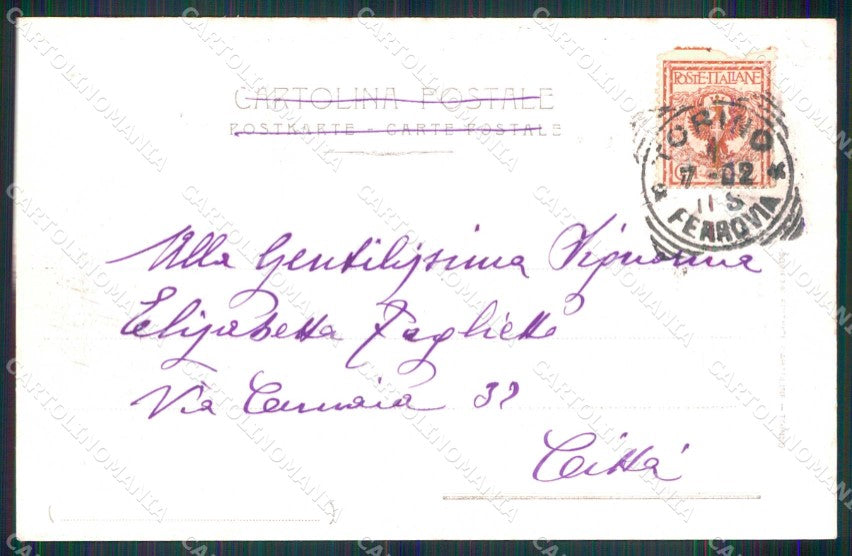 CARTOLINA POSTALE
POSTKARTE - CARTE POSTALE
POSTE ITALIANE
TORINO
7 - 02
11 S
FERROVIA
Alla Gentilissima Signorina
Elisabetta Tagliette
Via Cernaia 32
Città
CARTOLINOMANIA